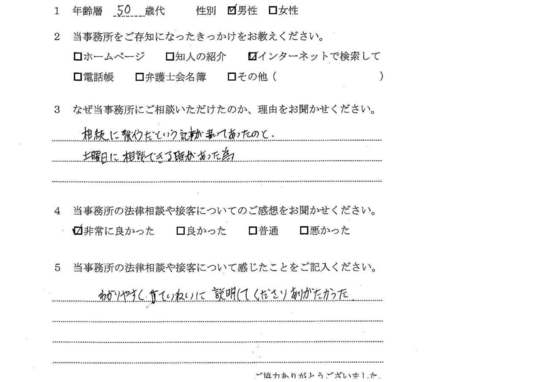 1 年齢層 50 歳代 性別 ☑男性 □女性
2 当事務所をご存知になったきっかけをお教えください。
□ホームページ □知人の紹介 ☑インターネットで検索して
□電話帳 □弁護士会名簿 □その他( )
3 なぜ当事務所にご相談いただけたのか、理由をお聞かせください。
相続に強そうだという記事が載ってあったのと、
土曜日に相談できる日があった為
4 当事務所の法律相談や接客についてのご感想をお聞かせください。
☑非常に良かった □良かった □普通 □悪かった
5 当事務所の法律相談や接客について感じたことをご記入ください。
わかりやすく ていねいに 説明してくださりありがたかった
ご協力ありがとうございました。